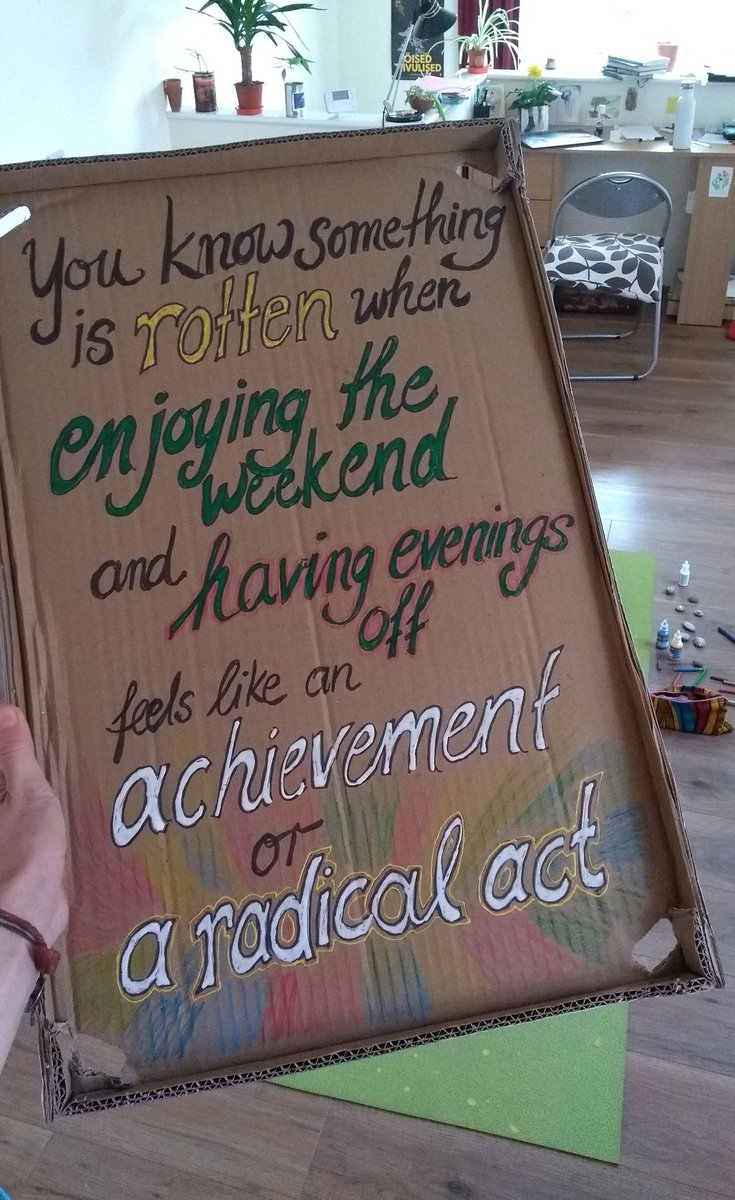 ÕISED
IVULISED
You know something
is rotten when
enjoying the
weekend
and having evenings
off
feels like an
achievement
or
a radical act